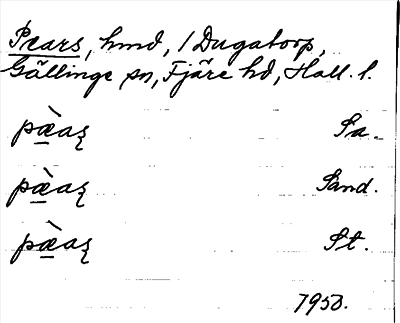 Pears, hmd, / Dugatorp,
Gällinge sn, Fjäre hd, Hall. l.
pæ̀aꝜ Sa.
pæ̀aꝜ Sand.
pæ̀aꝜ St.
1950.